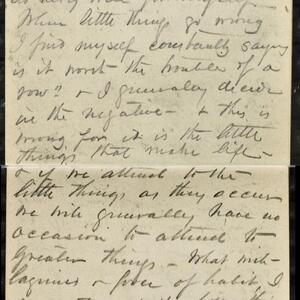 When little things go wrong
I find myself constantly saying
is it worth the trouble of a
row? & I generally decide
in the negative - & this is
wrong for it is the little
things that make life -
& if we attend to the
little things as they occur
we will generally have no
occasion to attend to
greater things - What with
laziness & force of habit I